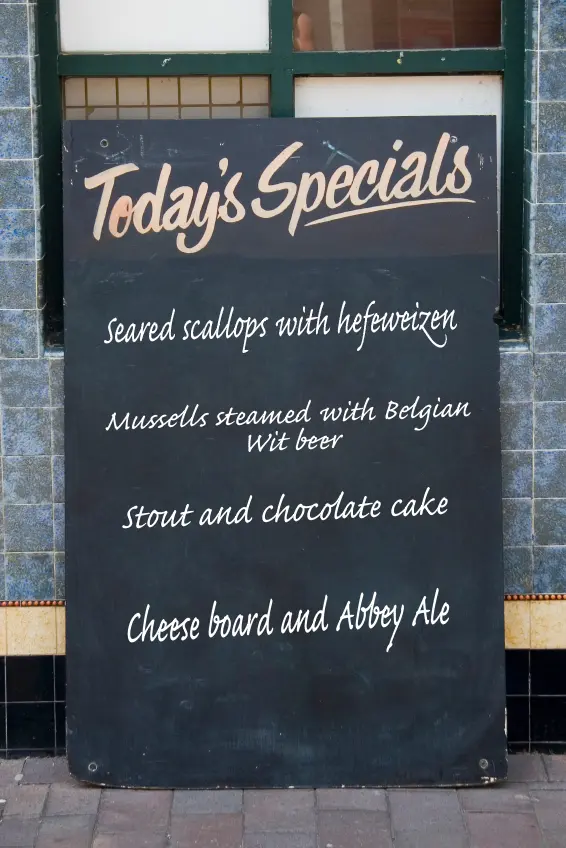 Today's Specials
Seared scallops with hefeweizen
Mussells steamed with Belgian
Wit beer
Stout and chocolate cake
Cheese board and Abbey Ale